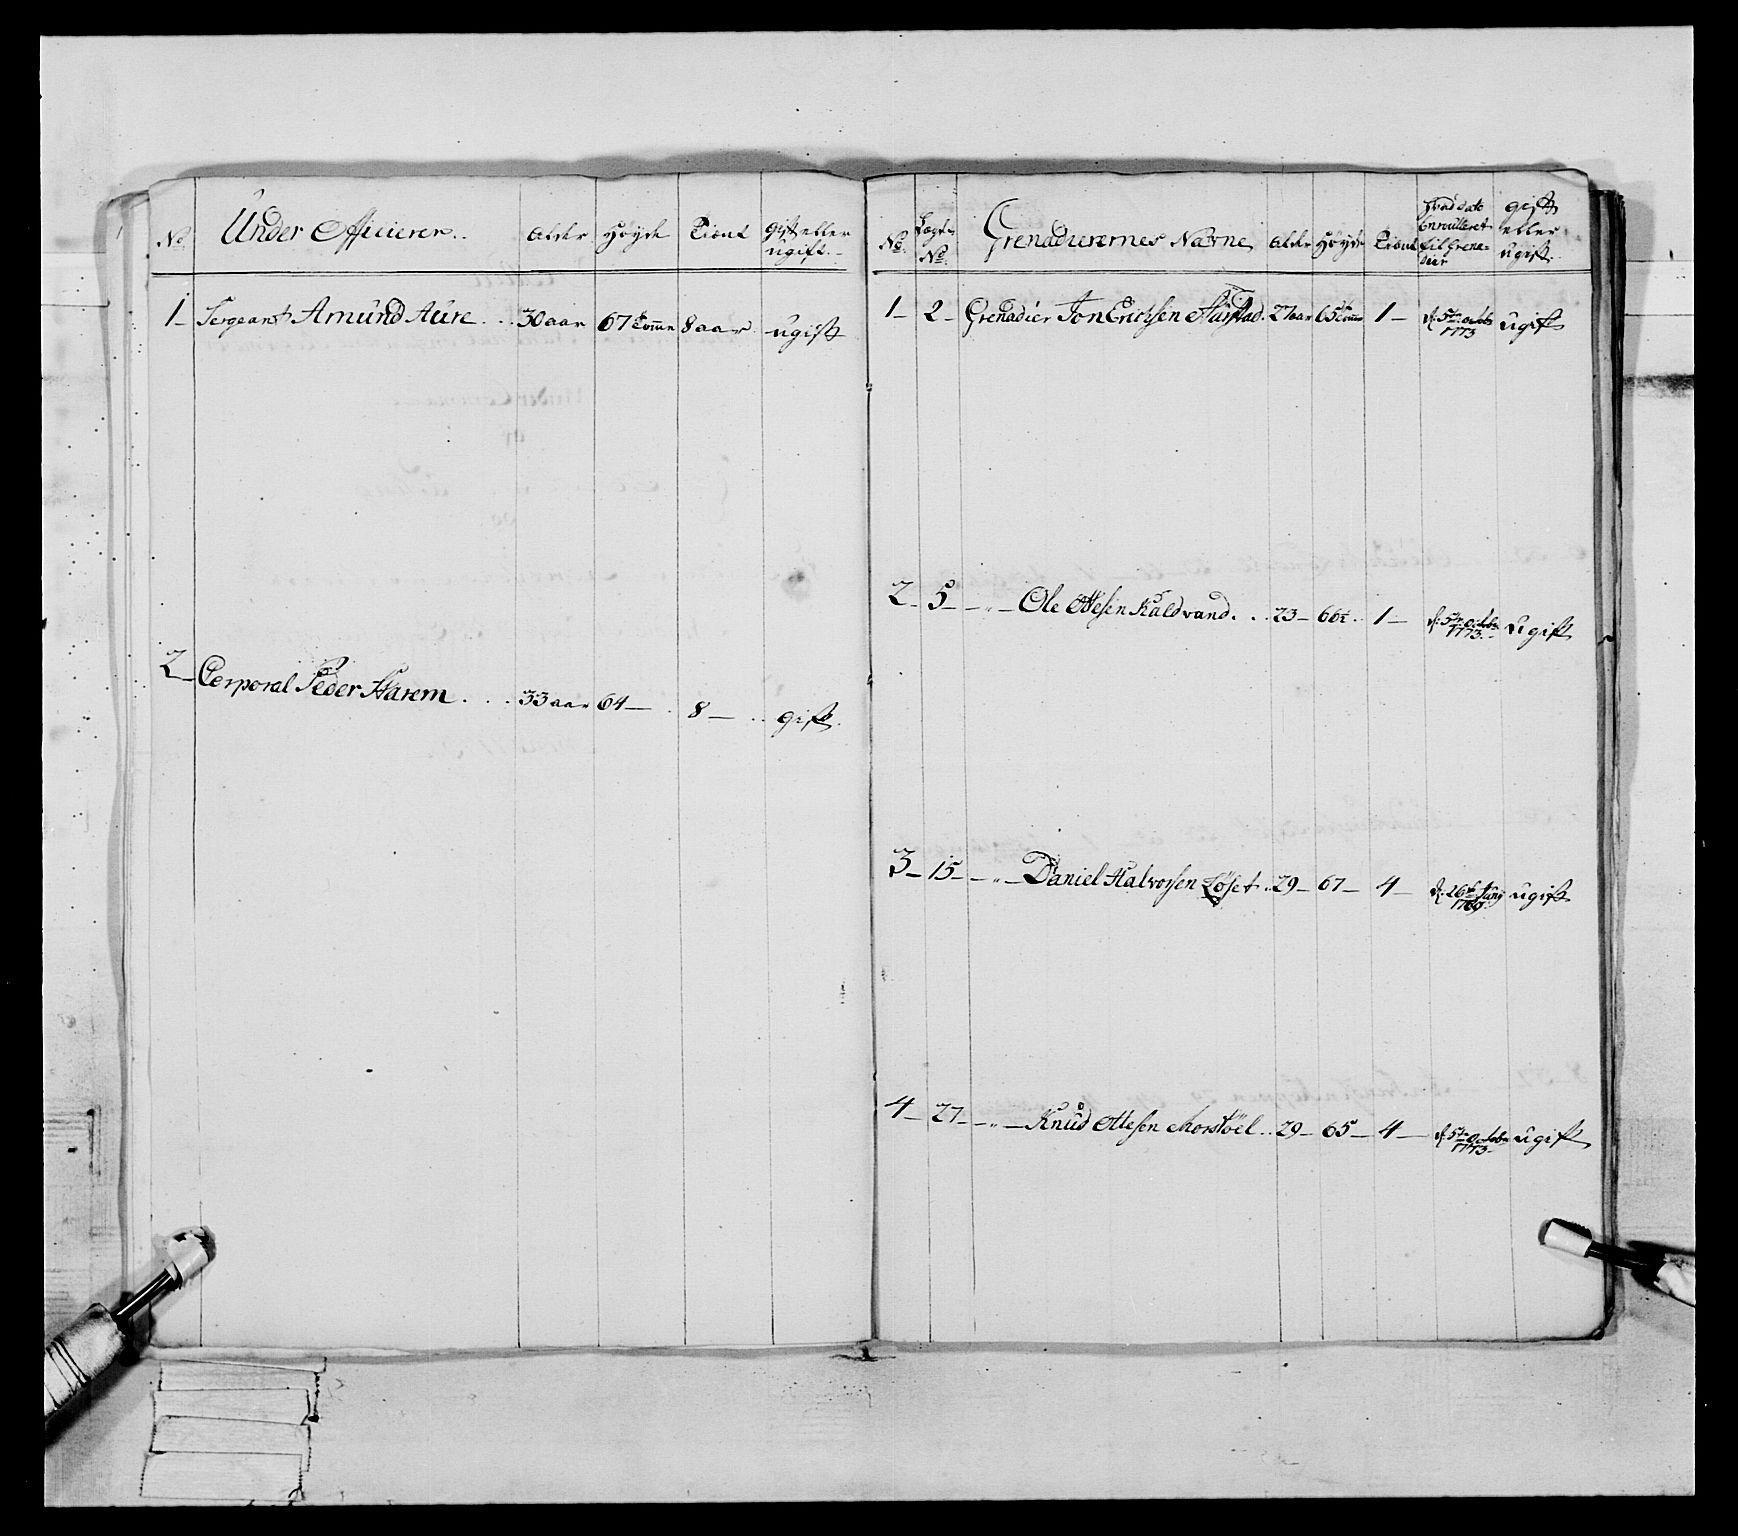 No. Under Officierer.. Alder Høyde Tient gift eller
ugift..
1 – Sergeant Amund Aure . . . 30 aar 67 Tomm 8 aar . ugift
2 – Corporal Peder Harem . . . 33 aar 64 – . 8 – . . gift.
No. Lægds No. Grenadierernes Navne Alder Høyde Tient hvad dato
Enroulleret
til Grena-
dier
gift
eller
ugift.
1 – 2 – Grenadier Jon Erichsen Aarstad . 27 aar 65 Tomm 1 – d: 5te octobr
1773 ugift
2 – 5 – – „ – Ole Ottesen Kaldvand . . . 23 – 66½ . . 1 – d: 5te octobr
1773. – ugift
3 – 15 – – „ – Daniel Halvorsen Løset . . 29 – 67 – 4 – d: 26de Juny
1769 ugift
4 – 27 – – „ – Knud Ottesen Morstöel . . 29 – 65 – 4 – d: 5te octobr
1773. – ugift